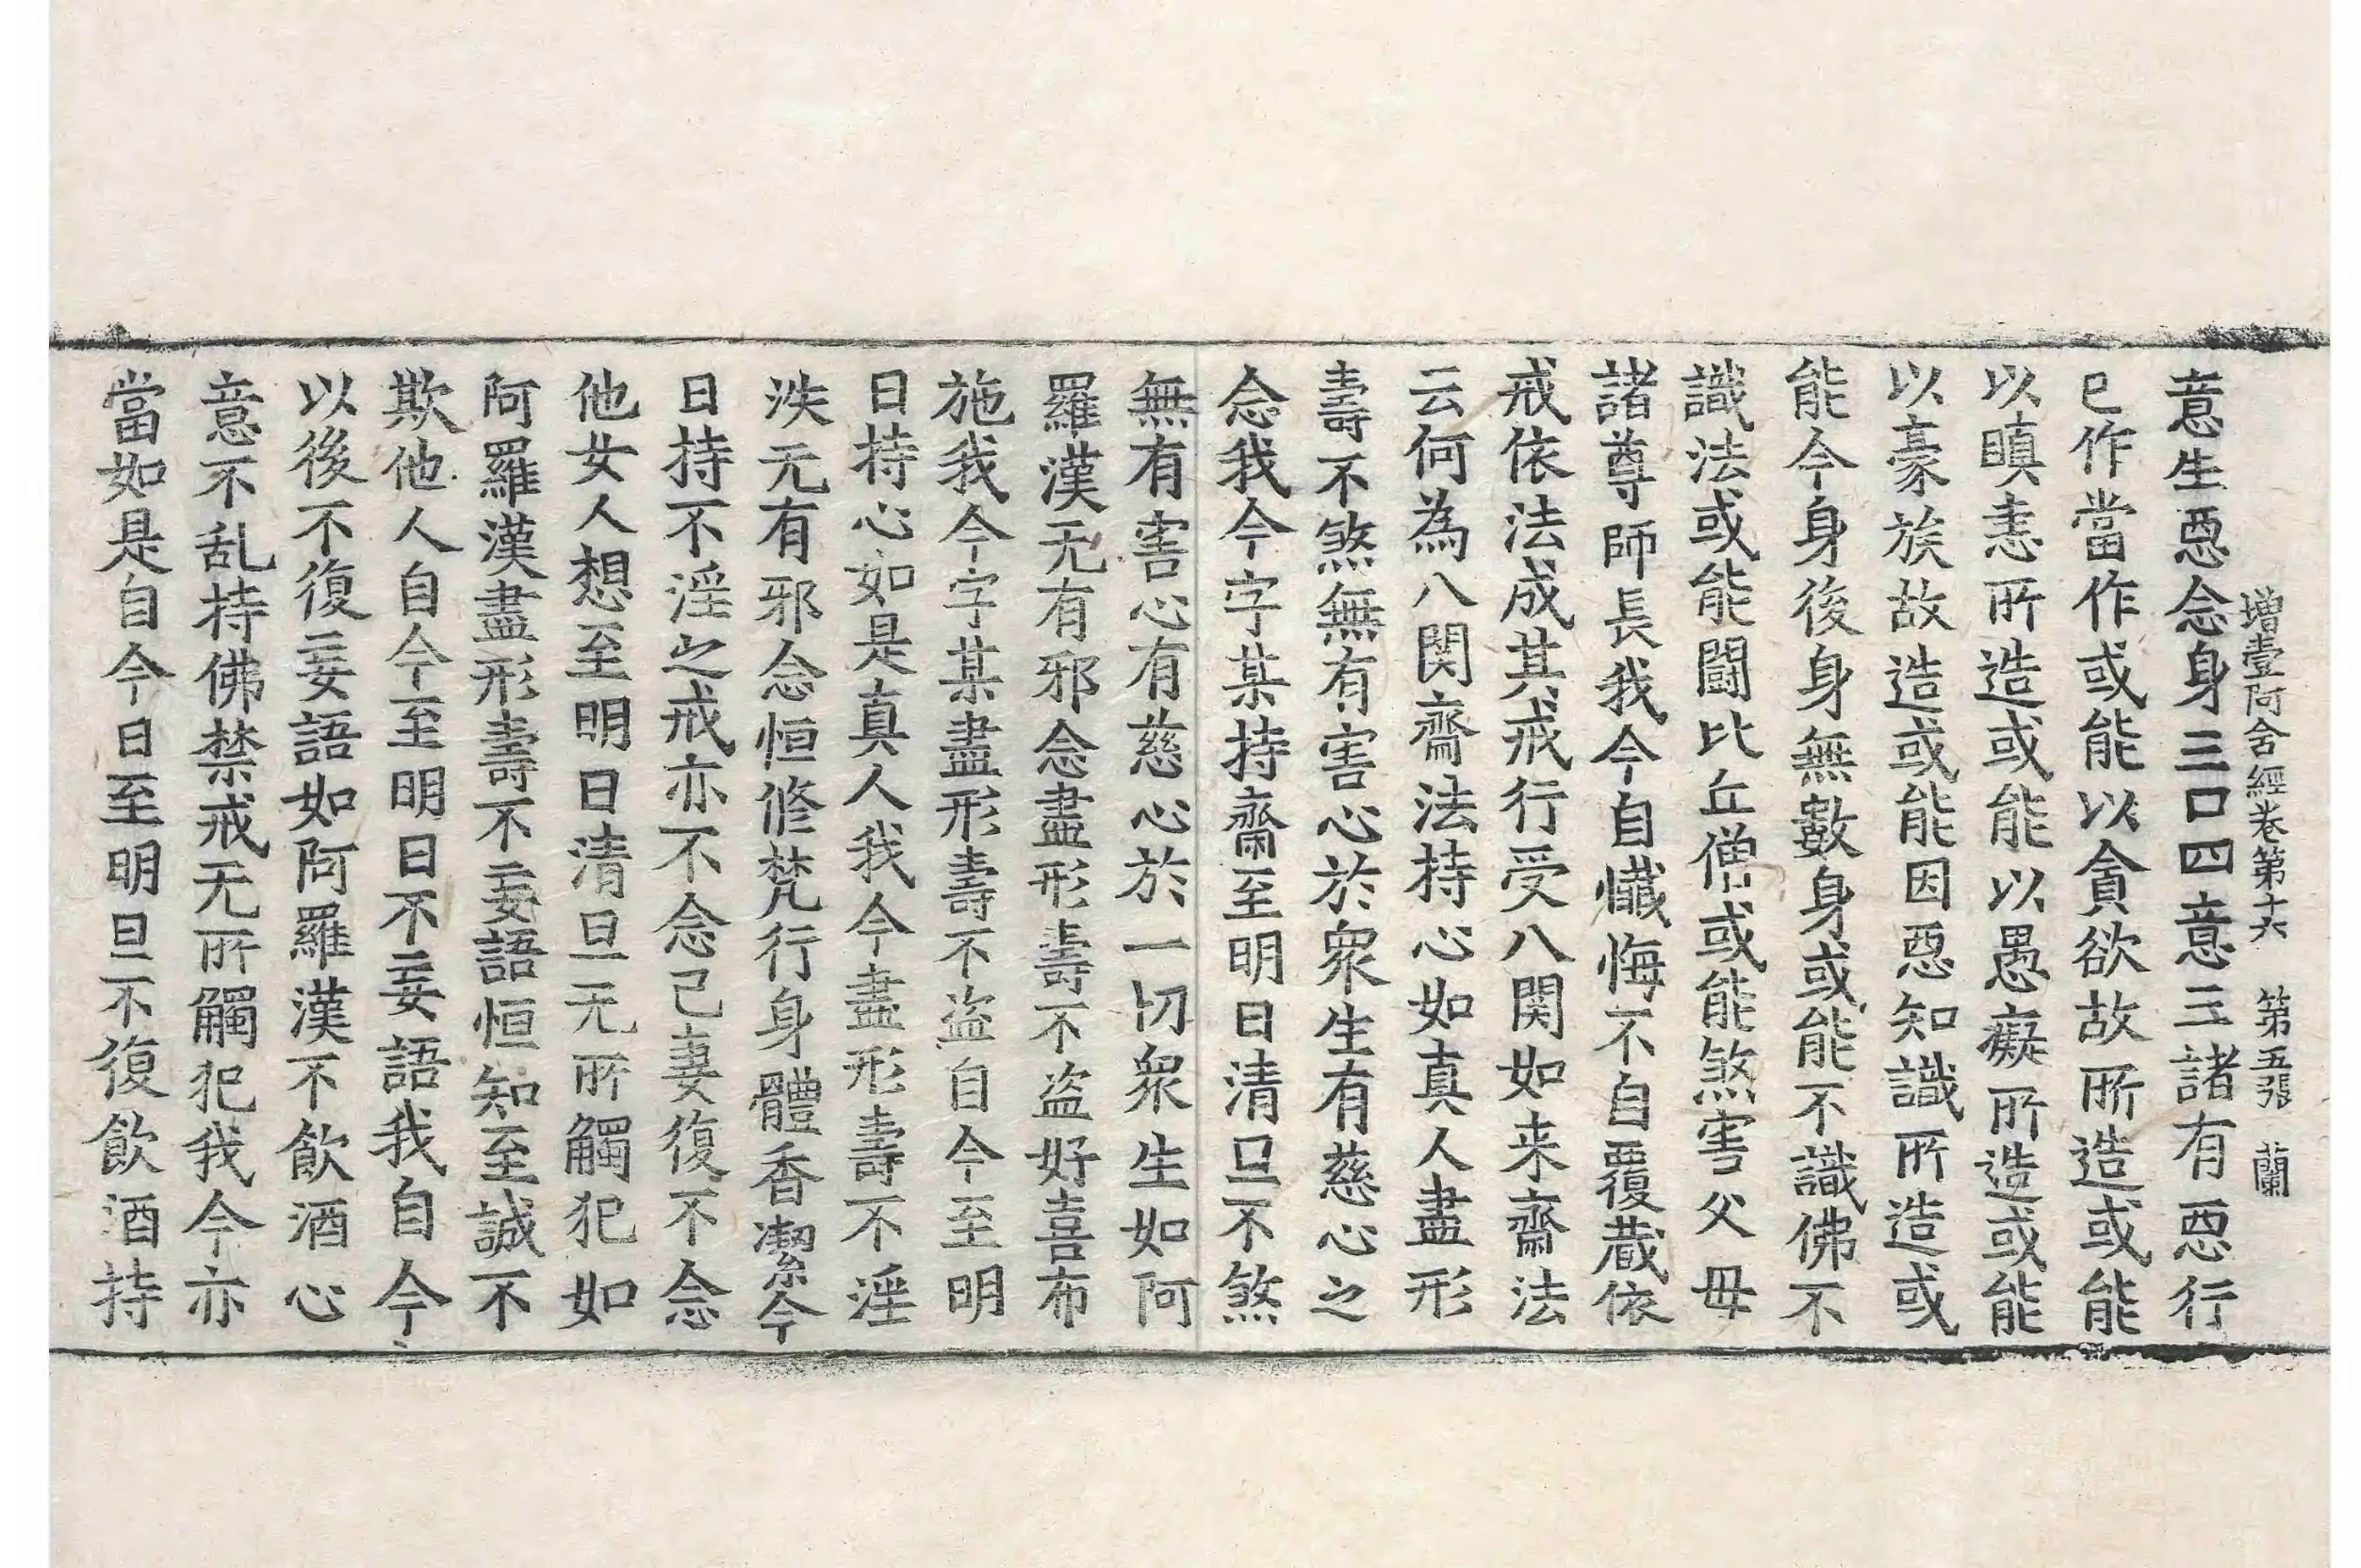 增壹阿含經卷第十六　第五張　蘭
意生惡念身三口四意三諸有惡行
已作當作或能以貪欲故所造或能
以瞋恚所造或能以愚癡所造或能
以豪族故造或能因惡知識所造或
能今身後身無數身或能不識佛不
識法或能鬪比丘僧或能煞害父母
諸尊師長我今自懺悔不自覆蔵依
戒依法成其戒行受八関如来齋法
云何為八関齋法持心如真人盡形
壽不煞無有害心於衆生有慈心之
念我今字某持齋至明日清旦不煞
無有害心有慈心於一切衆生如阿
羅漢无有邪念盡形壽不盗好喜布
施我今字某盡形壽不盗自今至明
日持心如是真人我今盡形壽不淫
泆无有邪念恒修梵行身體香潔今
日持不淫之戒亦不念己妻復不念
他女人想至明日清旦无所觸犯如
阿羅漢盡形壽不妄語恒知至誠不
欺他人自今至明日不妄語我自今
以後不復妄語如阿羅漢不飲酒心
意不乱持佛禁戒无所觸犯我今亦
當如是自今日至明旦不復飲酒持